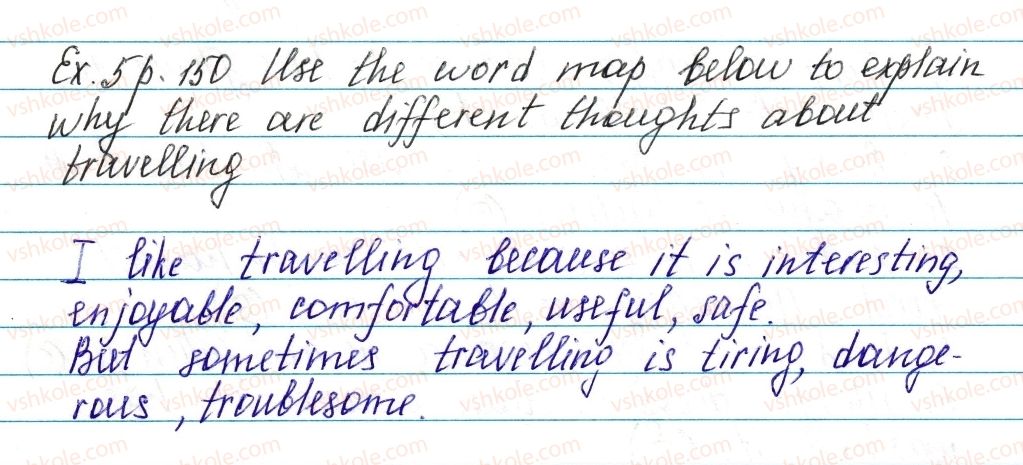 Ex. 5 p. 150 Use the word map below to explain
why there are different thoughts about
travelling
I like travelling because it is interesting,
enjoyable, comfortable, useful, safe.
But sometimes travelling is tiring, dange-
rous, troublesome.